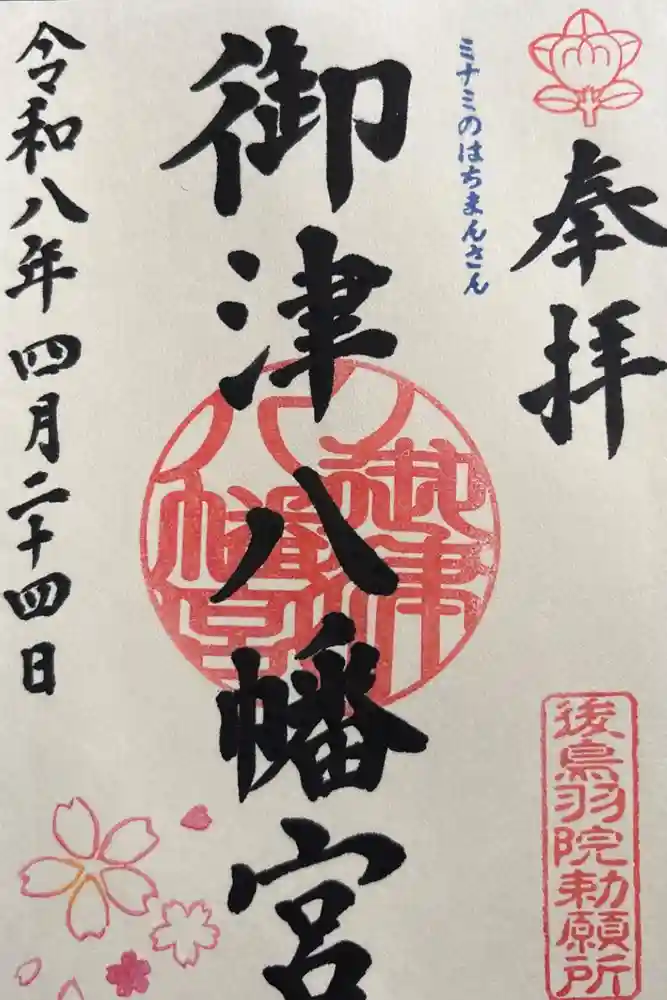 奉拝
ミナミのはちまんさん
御津八幡宮
御津八幡宮
後鳥羽院勅願所
令和八年四月二十四日